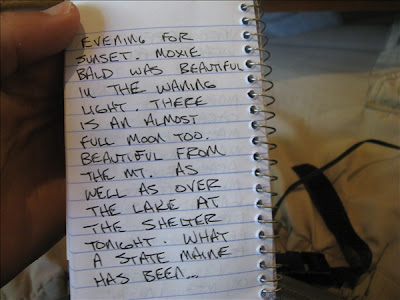 EVENING FOR
SUNSET. MOXIE
BALD WAS BEAUTIFUL
IN THE WANING
LIGHT. THERE
IS AN ALMOST
FULL MOON TOO.
BEAUTIFUL FROM
THE MT. AS
WELL AS OVER
THE LAKE AT
THE SHELTER
TONIGHT. WHAT
A STATE MAINE
HAS BEEN...